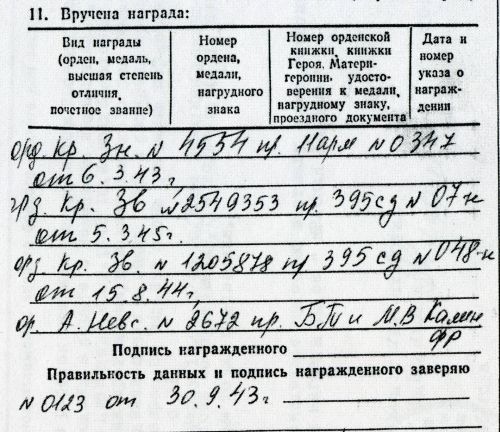 11. Вручена награда:
Вид награды (орден, медаль, высшая степень отличия, почетное звание)
Номер ордена, медали, нагрудного знака
Номер орденской книжки, книжки Героя, Матери-героини, удостоверения к медали, нагрудному знаку, проездного документа
Дата и номер указа о награждении
орд. Кр. Зн. № 4554 пр. 11арм №0347
от 6.3.43г,
орд. Кр. Зв №2549353 пр. 395сд №07-н
от 5.3.45г.
орд. Кр. Зв. №1205878 пр 395 сд №048-н
от 15.8.44г,
ор. А. Невс. № 2672 пр. БТ и М.В Калин
фр
Подпись награжденного
Правильность данных и подпись награжденного заверяю
№ 0123 от 30.9.43г